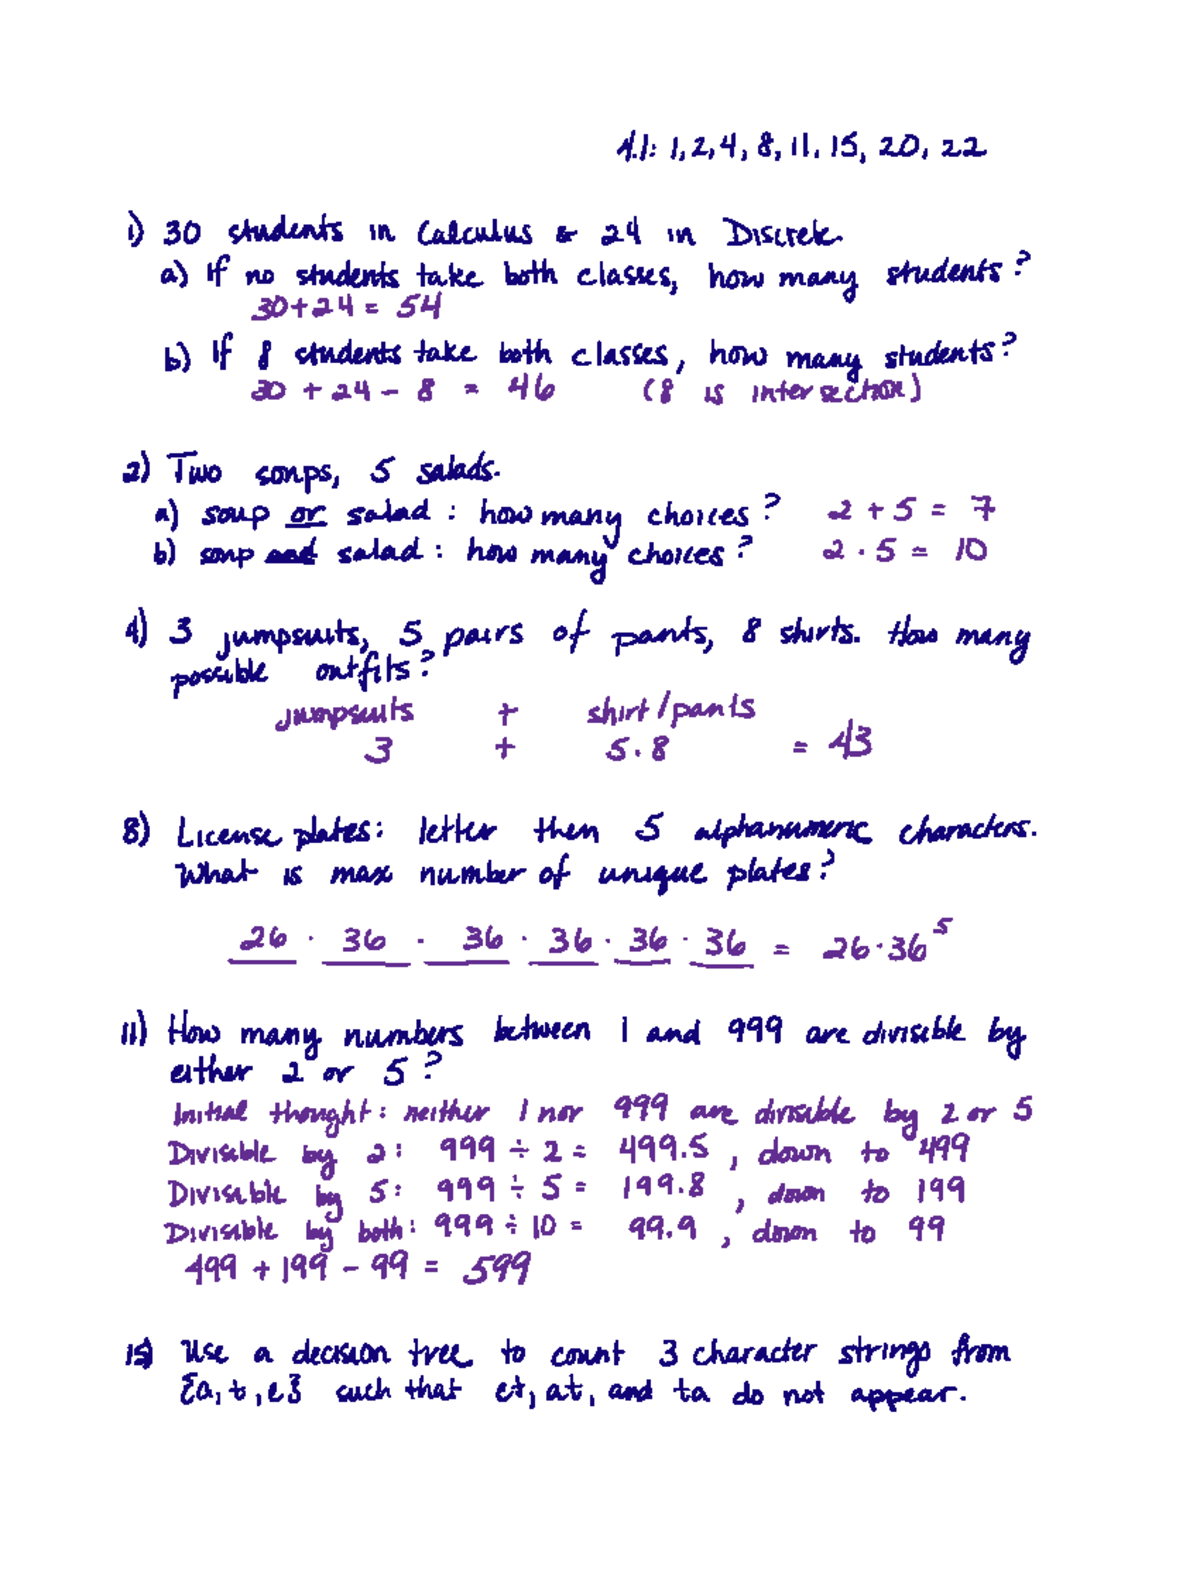 4.1: 1, 2, 4, 8, 11, 15, 20, 22
1) 30 students in Calculus & 24 in Discrete.
a) If no students take both classes, how many students?
30+24 = 54
b) If 8 students take both classes, how many students?
30 + 24 - 8 = 46 (8 is intersection)
2) Two soups, 5 salads.
a) soup or salad : how many choices? 2 + 5 = 7
b) soup and salad : how many choices? 2 · 5 = 10
4) 3 jumpsuits, 5 pairs of pants, 8 shirts. How many
possible outfits?
jumpsuits + shirt/pants
3 + 5 · 8 = 43
8) License plates: letter then 5 alphanumeric characters.
What is max number of unique plates?
26 · 36 · 36 · 36 · 36 · 36 = 26·36⁵
11) How many numbers between 1 and 999 are divisible by
either 2 or 5?
Initial thought: neither 1 nor 999 are divisible by 2 or 5
Divisible by 2: 999 ÷ 2 = 499.5, down to 499
Divisible by 5: 999 ÷ 5 = 199.8, down to 199
Divisible by both: 999 ÷ 10 = 99.9, down to 99
499 + 199 - 99 = 599
15) Use a decision tree to count 3 character strings from
{a, t, e} such that et, at, and ta do not appear.